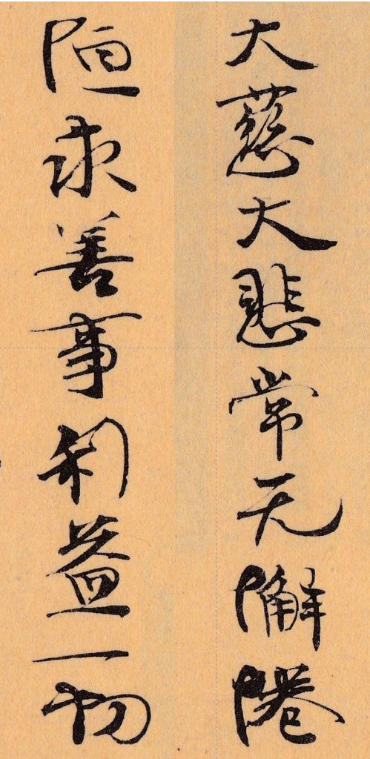 大慈大悲常无懈惓
恒求善事利益一切